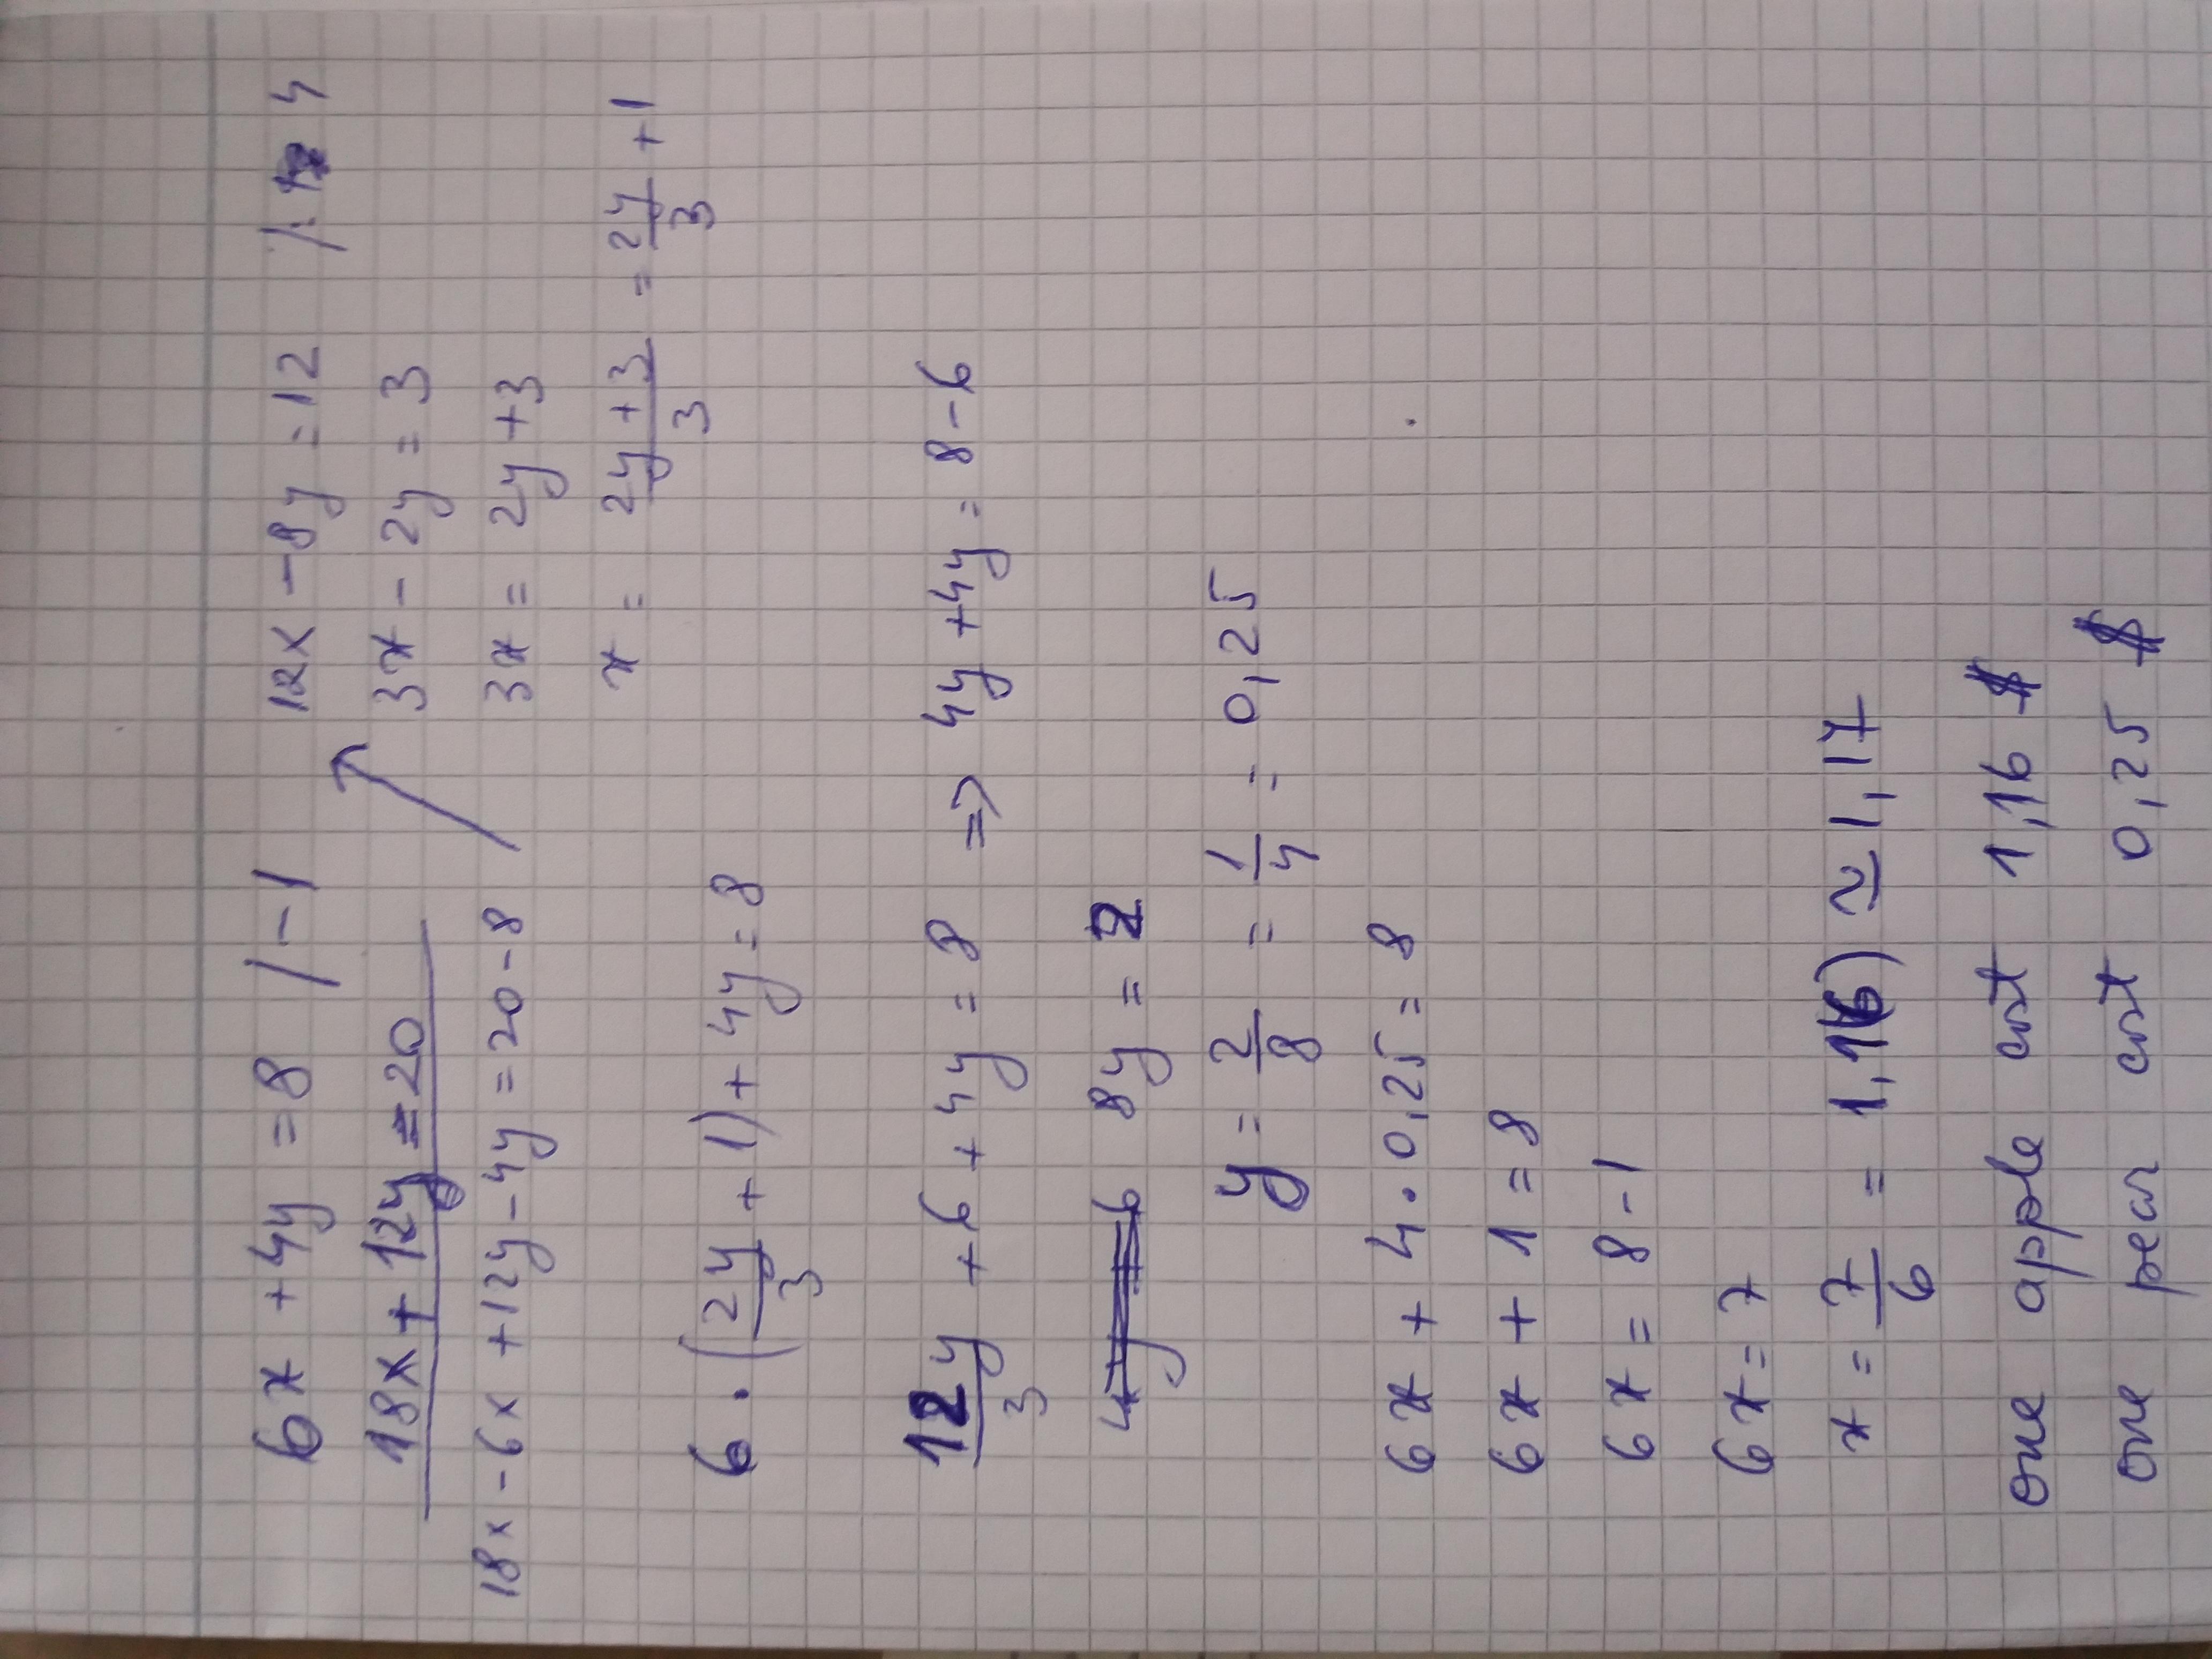 6x + 4y = 8 / -1
18x + 12y = 20
18x - 6x + 12y - 4y = 20 - 8
12x - 8y = 12 /: 4
3x - 2y = 3
3x = 2y + 3
x = 2y + 3/3 = 2y/3 + 1
6 · (2y/3 + 1) + 4y = 8
12y/3 + 6 + 4y = 8 => 4y + 4y = 8 - 6
4y 6 8y = 2
y = 2/8 = 1/4 = 0,25
6x + 4 · 0,25 = 8
6x + 1 = 8
6x = 8 - 1
6x = 7
x = 7/6 = 1,1(6) ≃ 1,17
one apple cost 1,16 $
one pear cost 0,25 $